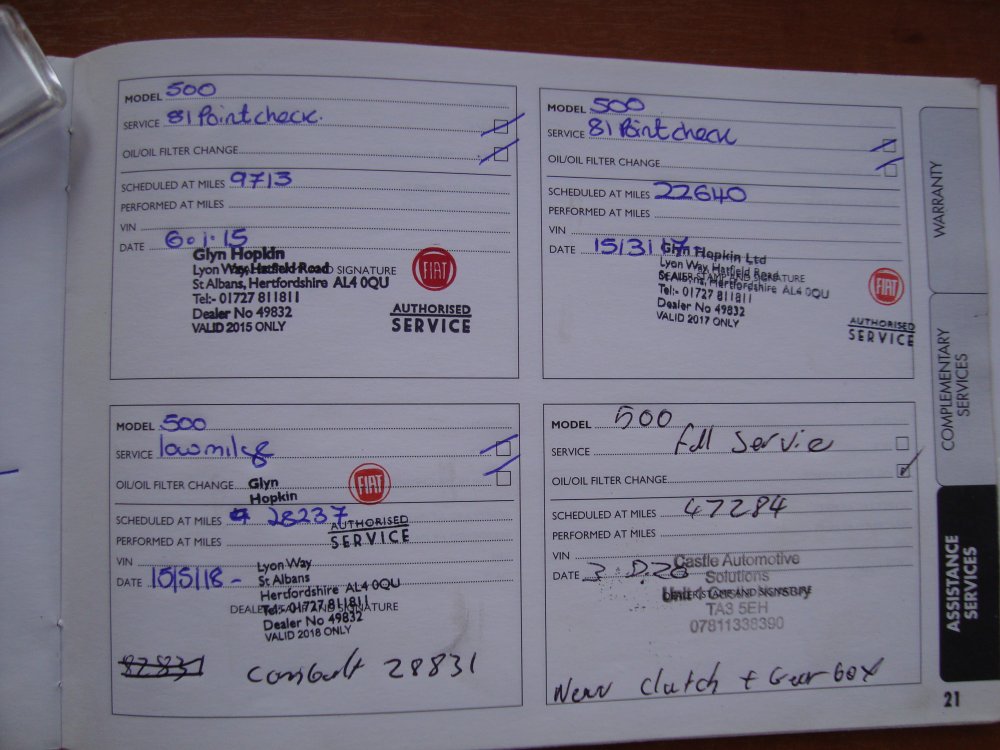 MODEL 500
SERVICE 81 Point check.
OIL/OIL FILTER CHANGE
SCHEDULED AT MILES 9713
PERFORMED AT MILES
VIN
DATE 6.1.15
Glyn Hopkin
Lyon Way, Hatfield Road
SIGNATURE
St Albans, Hertfordshire AL4 0QU
Tel:- 01727 811811
Dealer No 49832
VALID 2015 ONLY
FIAT
AUTHORISED
SERVICE
MODEL 500
SERVICE 81 Point check
OIL/OIL FILTER CHANGE
SCHEDULED AT MILES 22640
PERFORMED AT MILES
VIN
DATE 15/3/17
Glyn Hopkin Ltd
Lyon Way, Hatfield Road
St Albans, Hertfordshire AL4 0QU
DEALER STAMP AND SIGNATURE
Tel:- 01727 811811
Dealer No 49832
VALID 2017 ONLY
FIAT
AUTHORISED
SERVICE
MODEL 500
SERVICE low milege
OIL/OIL FILTER CHANGE
Glyn
Hopkin
FIAT
AUTHORISED
SERVICE
SCHEDULED AT MILES 28237
PERFORMED AT MILES
VIN
DATE 15/5/18 -
Lyon Way
St Albans
Hertfordshire AL4 0QU
DEALER STAMP AND SIGNATURE
Tel:- 01727 811811
Dealer No 49832
VALID 2018 ONLY
28831
MODEL 500
SERVICE Full Service
OIL/OIL FILTER CHANGE
SCHEDULED AT MILES 47284
PERFORMED AT MILES
VIN
DATE
Castle Automotive
Solutions
DEALER STAMP AND SIGNATURE
TA3 5EH
07811338390
New Clutch + Gear box
WARRANTY
COMPLEMENTARY
SERVICES
ASSISTANCE
SERVICES
21